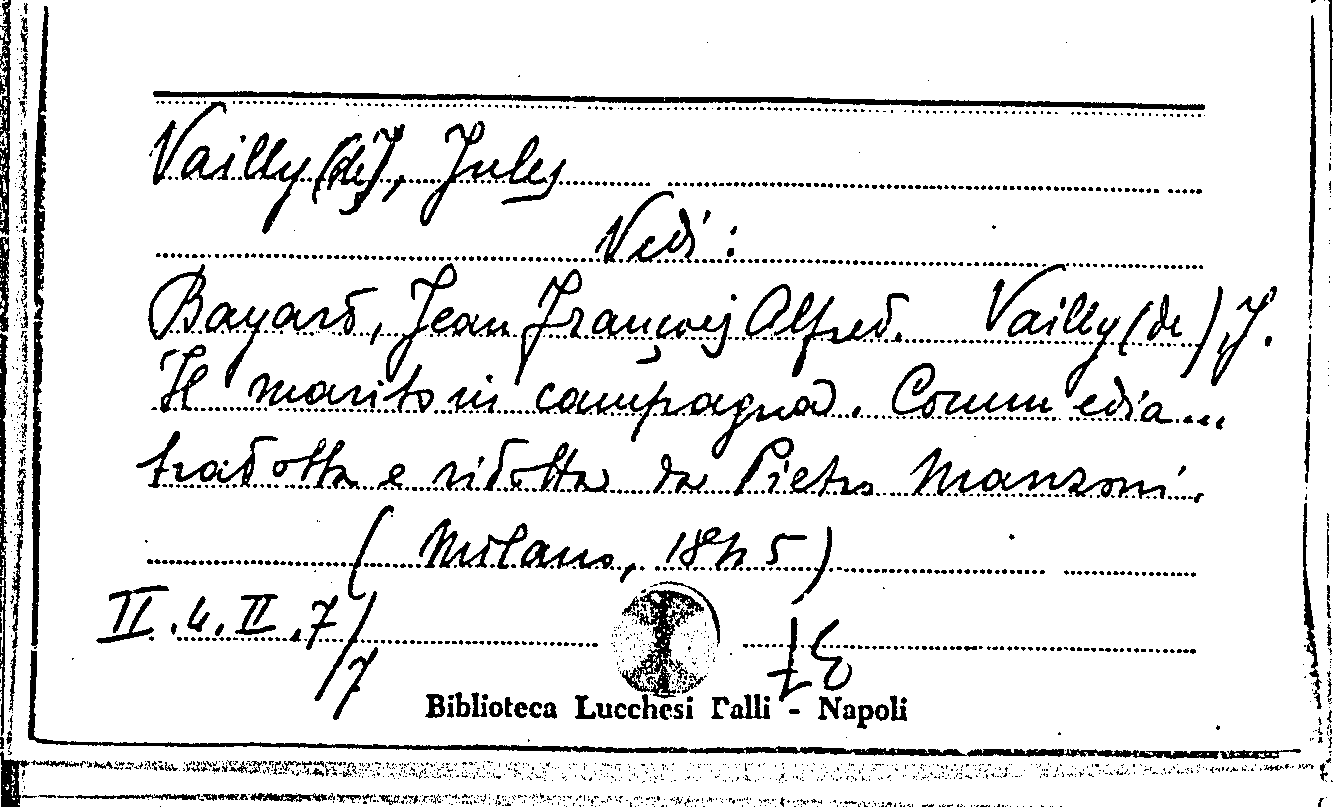 Vailly (de), Jules
Vedi:
Bayard, Jean François Alfred. Vailly (de), J.
Il marito in campagna. Commedia...
tradotta e ridotta da Pietro Manzoni.
(Milano, 1845)
II.4.II.7/7
Biblioteca Lucchesi Palli - Napoli